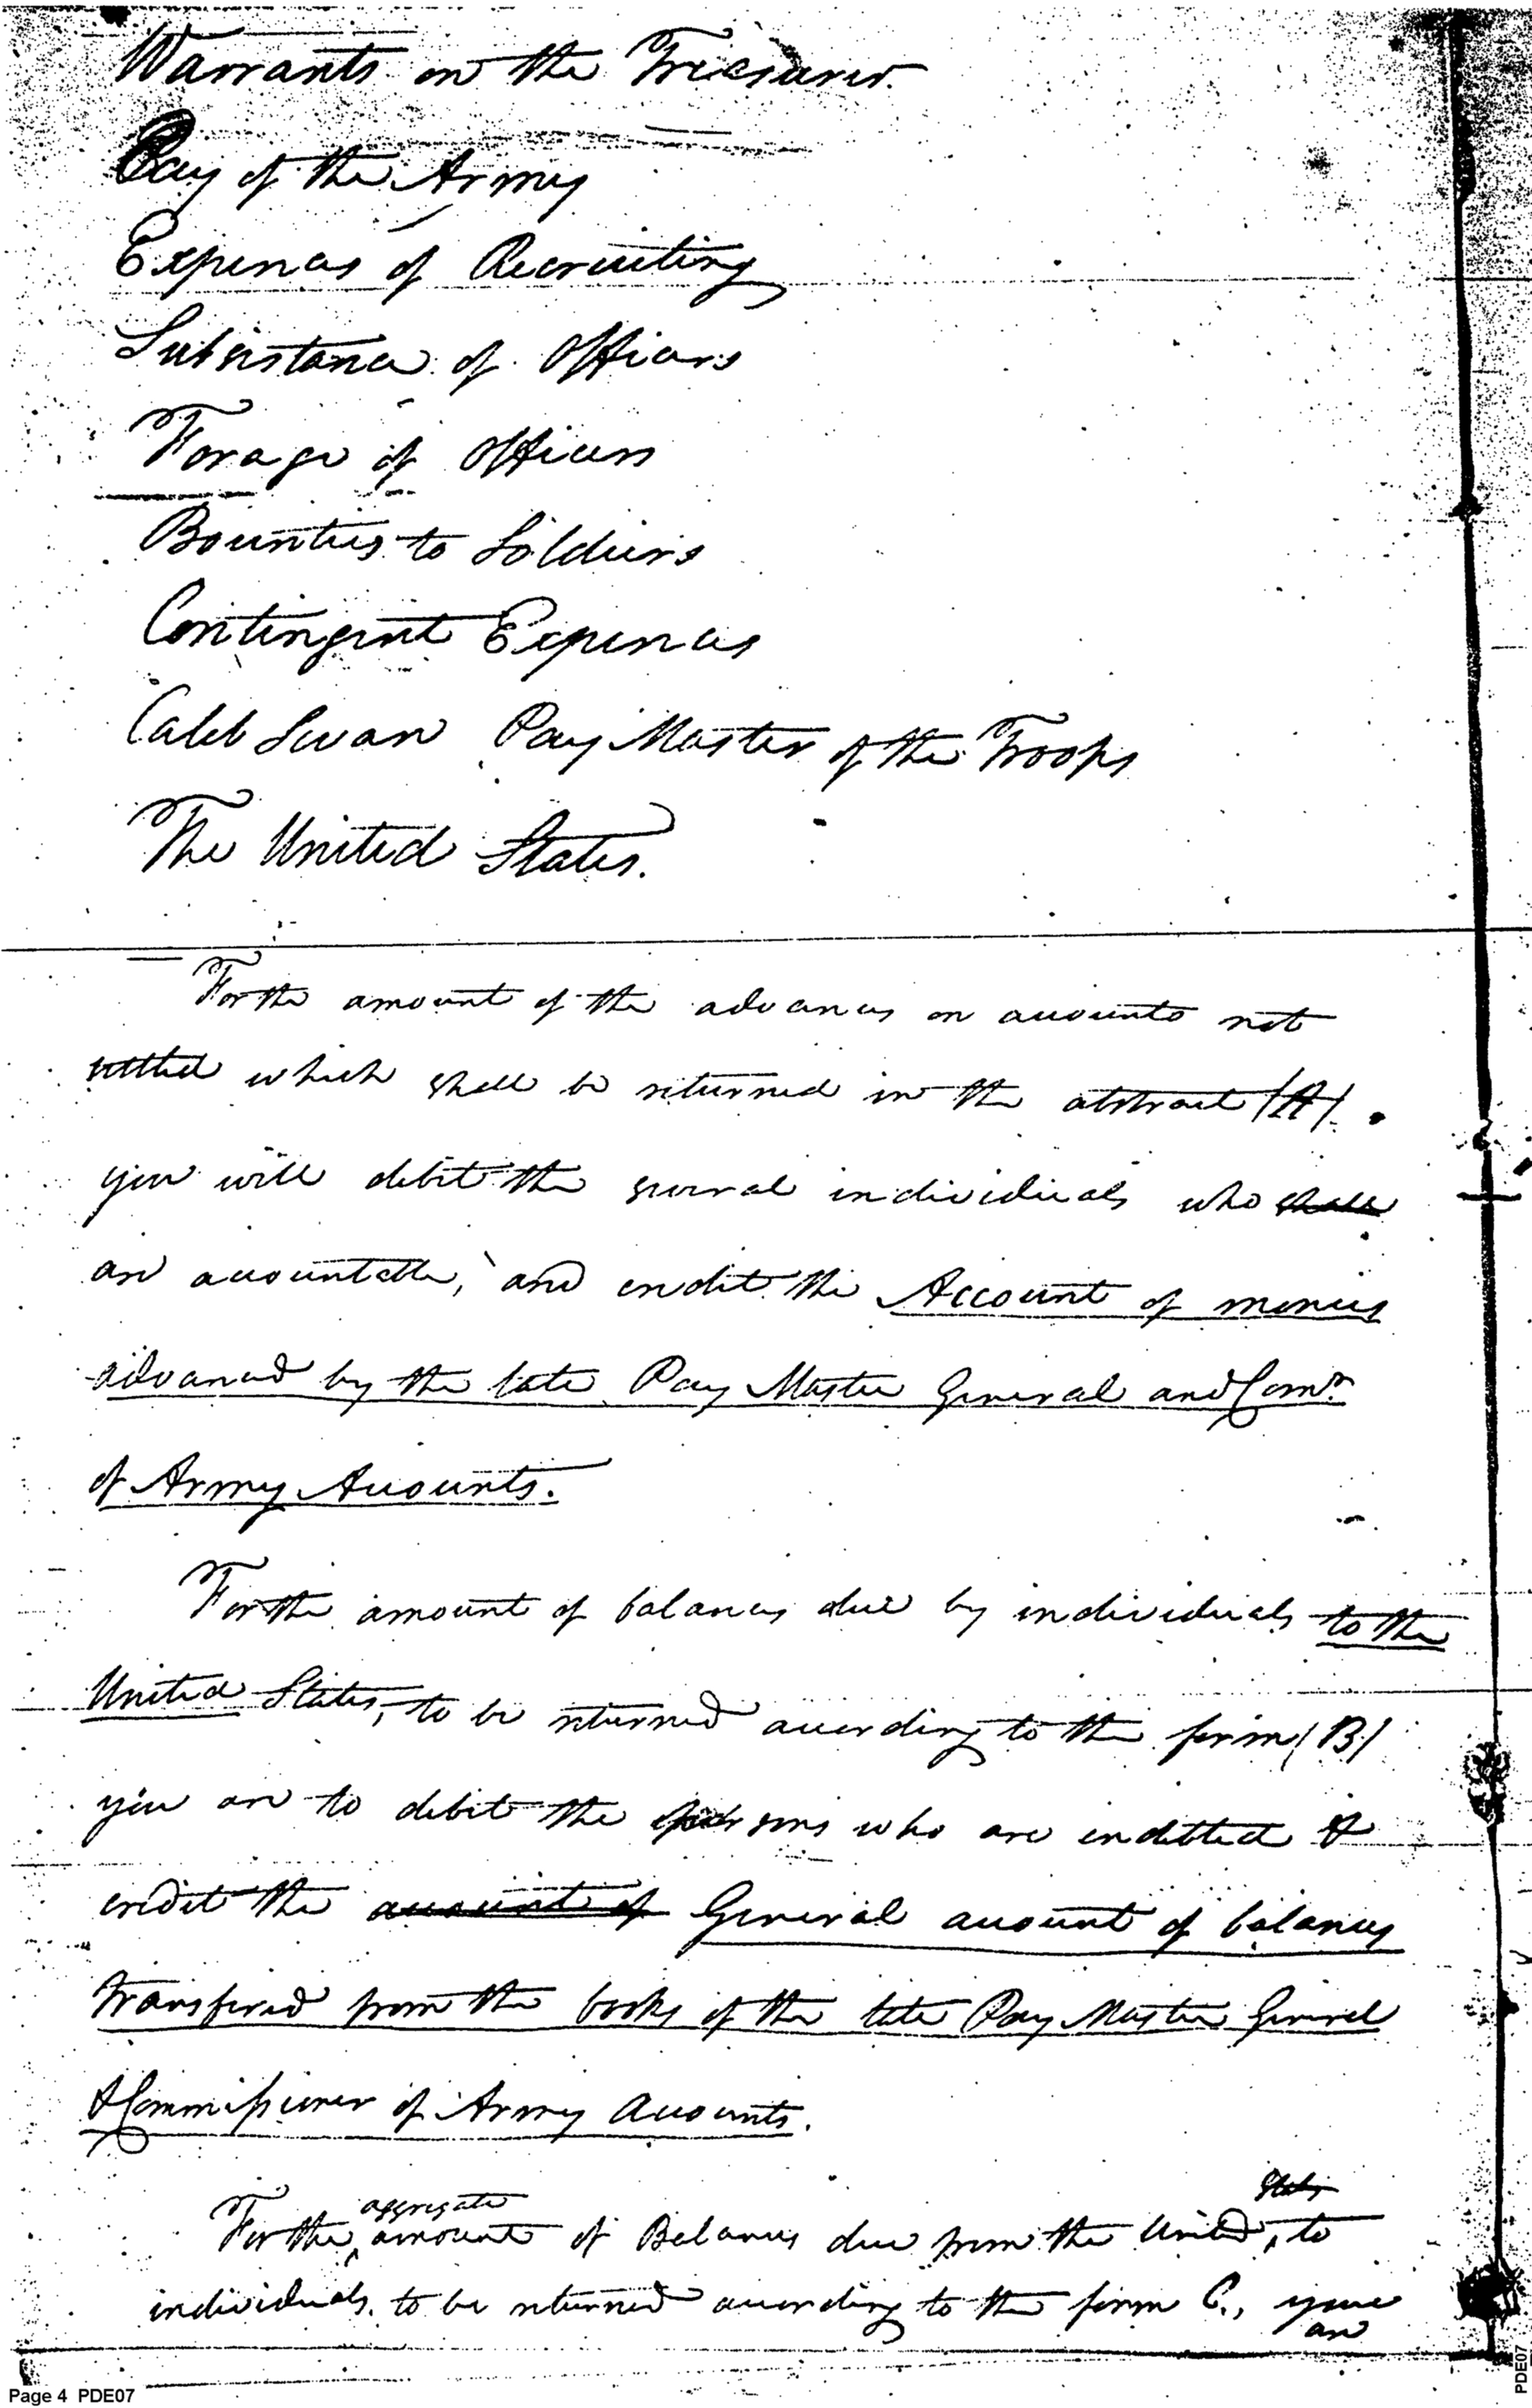 Warrants on the Treasurer.
Pay of the Army
Expences of Recruiting
Subsistance of Officers
Forage of Officers
Bounties to Soldiers
Contingent Expences
Caleb Swan Pay Master of the Troops
The United States.
For the amount of the advances on accounts not
settled which shall be returned in the abstract (A).
you will debit the several individuals who shall
are accountable, and credit the Account of monies
advanced by the late Pay Master General and Comr.
of Army Accounts.
For the amount of balances due by individuals to the
United States, to be returned according to the form (B)
you are to debit the persons who are indebted &
credit the account of General account of balances
transfered from the books of the late Pay Master General
& Commissioner of Army Accounts.
States
aggregate
For the amount of Balances due from the United, to
individuals, to be returned according to the form C., you
are
Page 4 PDE07
PDE07